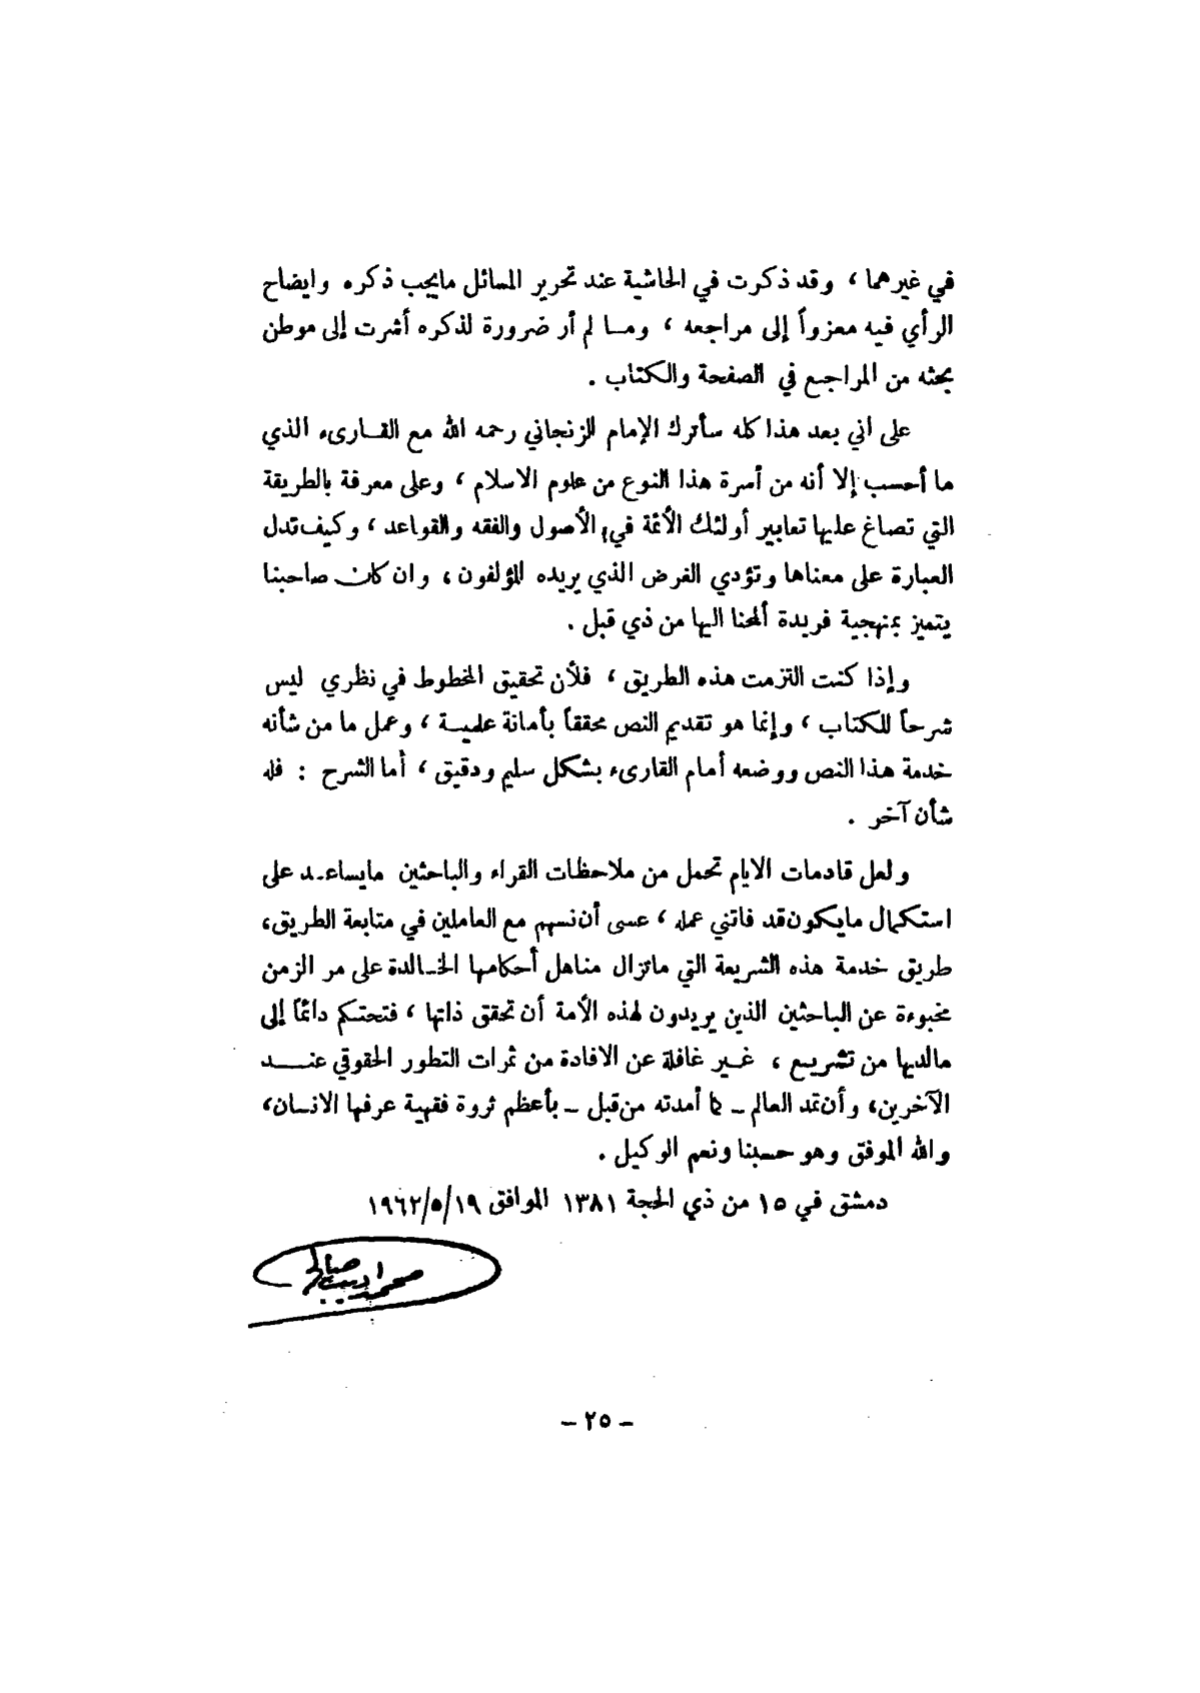 في غيرهما ، وقد ذكرت في الحاشية عند تحرير المسائل مايجب ذكره وايضاح
الرأي فيه معزواً إلى مراجعه ، ومـا لم أر ضرورة لذكره أشرت إلى موطن
بحثه من المراجع في الصفحة والكتاب .
على اني بعد هذا كله سأترك الإمام الزنجاني رحمه الله مع القـارىء الذي
ما أحسب إلا أنه من أسرة هذا النوع من علوم الاسلام ، وعلى معرفة بالطريقة
التي تصاغ عليها تعابير أولئك الأئمة في الأصول والفقه والقواعد ، وكيف تدل
العبارة على معناها وتؤدي الغرض الذي يريده المؤلفون ، وان كان صاحبنا
يتميز بمنهجية فريدة ألمحنا اليها من ذي قبل .
وإذا كنت التزمت هذه الطريق ، فلأن تحقيق المخطوط في نظري ليس
شرحاً للكتاب ، وإنما هو تقديم النص محققاً بأمانة علميـة ، وعمل ما من شأنه
خدمة هذا النص ووضعه أمام القارىء بشكل سليم ودقيق ، أما الشرح : فله
شأن آخر .
ولعل قادمات الايام تحمل من ملاحظات القراء والباحثين مايساعـد على
استكمال مايكون قد فاتني عمله ، عسى أن نسهم مع العاملين في متابعة الطريق،
طريق خدمة هذه الشريعة التي ماتزال مناهل أحكامها الخـالدة على مر الزمن
مخبوءة عن الباحثين الذين يريدون لهذه الأمة أن تحقق ذاتها ، فتحتكم دائماً إلى
مالديها من تشريـع ، غـير غافلة عن الافادة من ثمرات التطور الحقوقي عنـــد
الآخرين، وأن تمد العالم ـ كما أمدته من قبل ـ بأعظم ثروة فقهية عرفها الانسان،
والله الموفق وهو حسبنا ونعم الوكيل .
دمشق في ١٥ من ذي الحجة ١٣٨١ الموافق ١٩/٥/١٩٦٢
محمد اديب صالح
ـ ٢٥ ـ